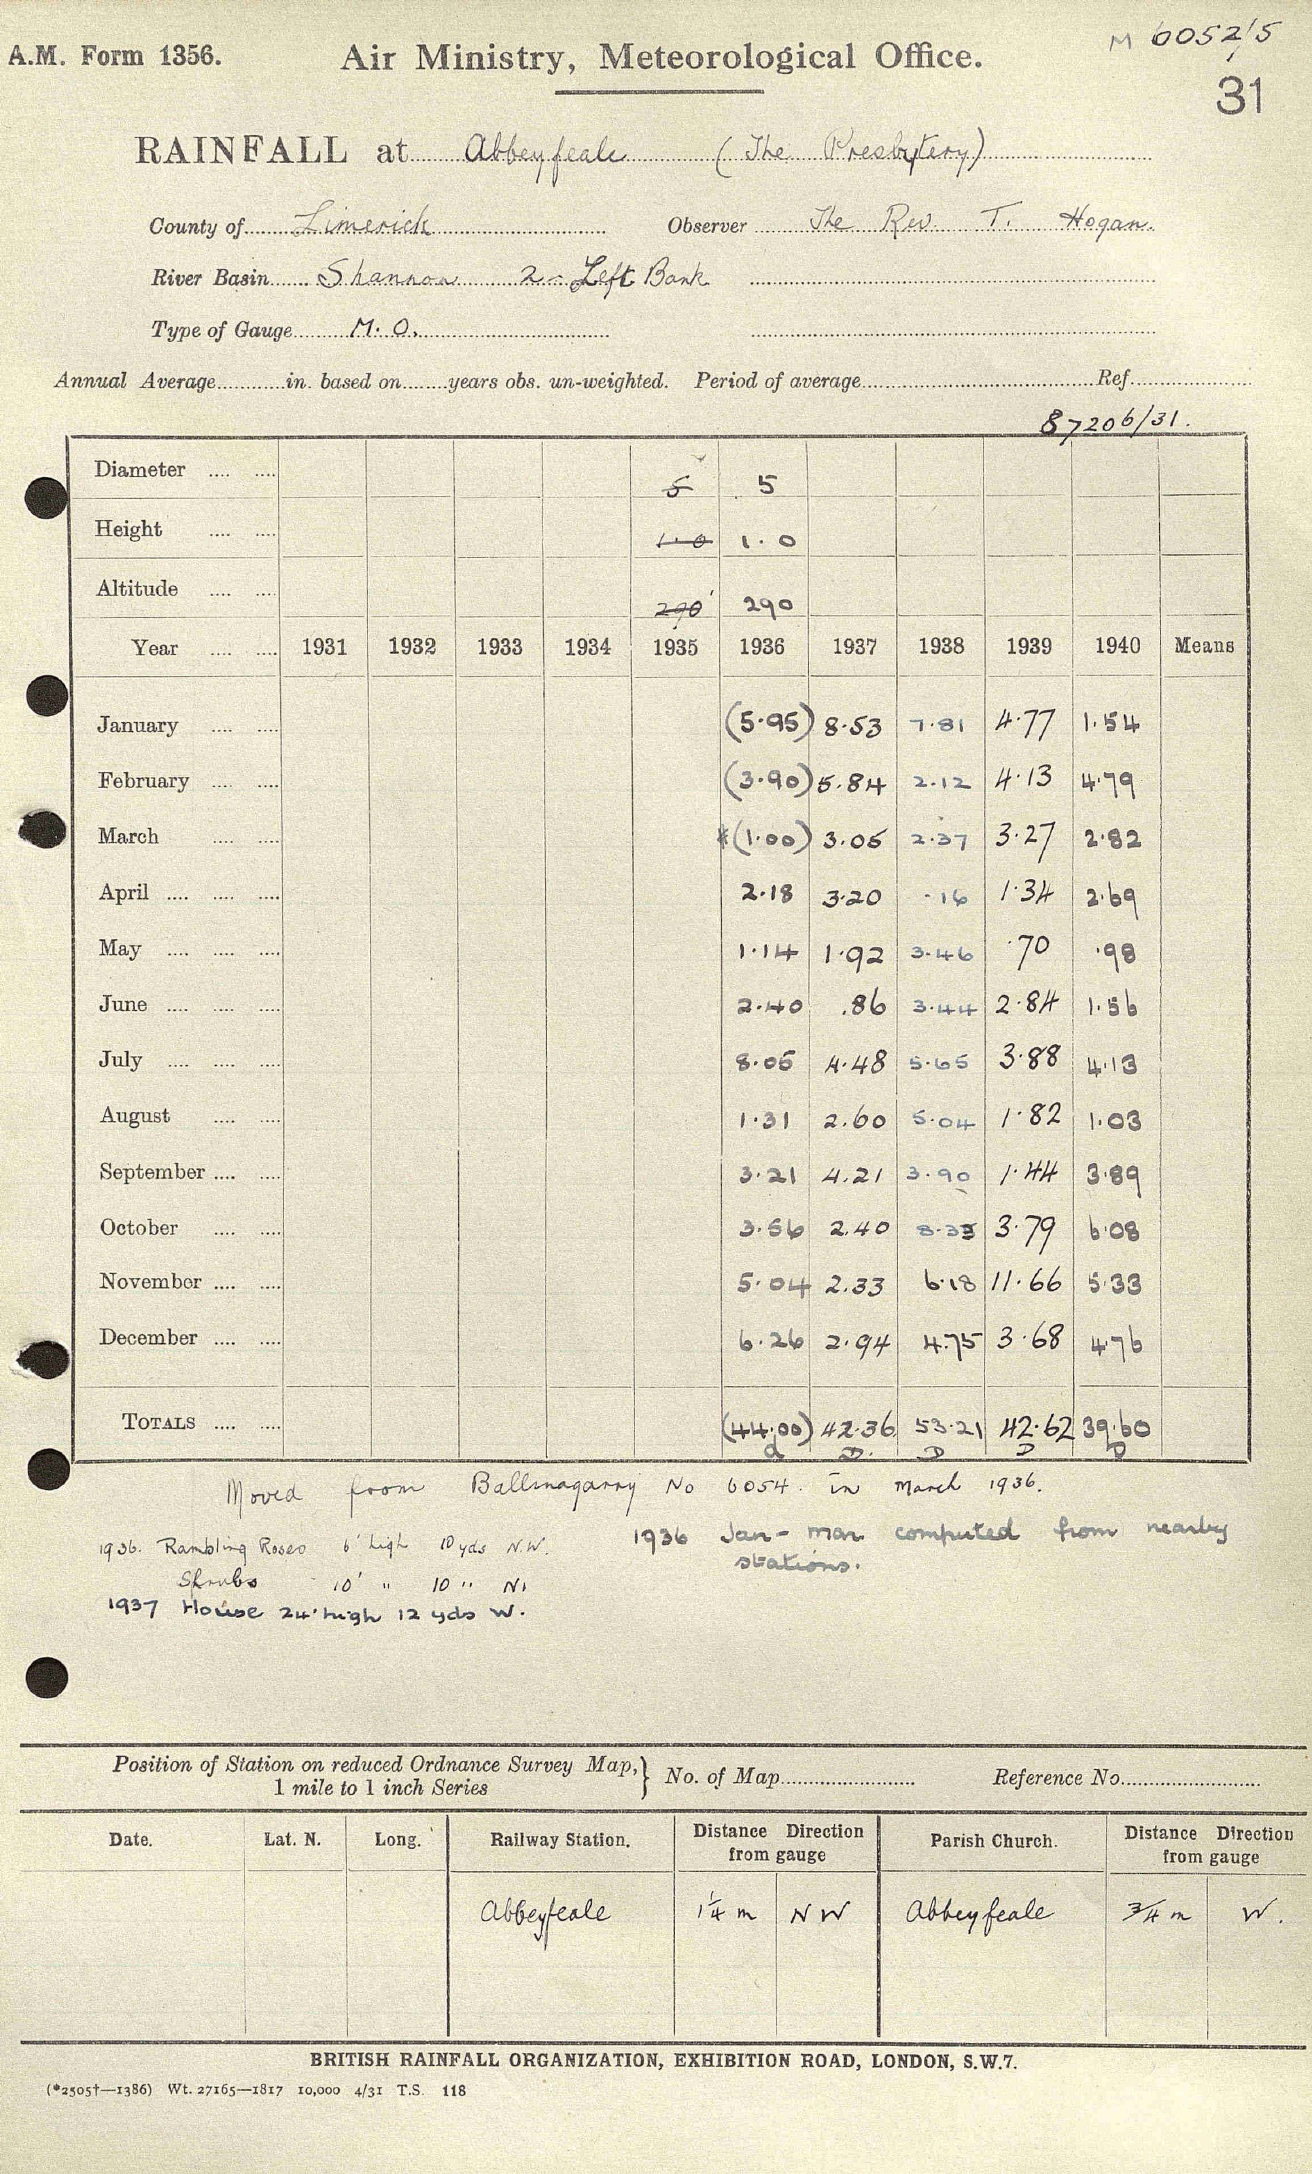 M 6052/5
A.M. Form 1356. Air Ministry, Meteorological Office.
31
RAINFALL at Abbeyfeale (The Presbytery)
County of Limerick Observer The Rev. T. Hogan.
River Basin Shannon 2 - Left Bank
Type of Gauge M.O.
Annual Average in. based on years obs. un-weighted. Period of average Ref.
87206/31.
Diameter 5 5
Height 1.0 1.0
Altitude 290' 290
Year 1931 1932 1933 1934 1935 1936 1937 1938 1939 1940 Means
January (5.95) 8.53 7.81 4.77 1.54
February (3.90) 5.84 2.12 4.13 4.79
March *(1.00) 3.05 2.37 3.27 2.82
April 2.18 3.20 .16 1.34 2.69
May 1.14 1.92 3.46 .70 .98
June 2.40 .86 3.44 2.84 1.56
July 8.05 4.48 5.65 3.88 4.13
August 1.31 2.60 5.04 1.82 1.03
September 3.21 4.21 3.90 1.44 3.89
October 3.56 2.40 8.33 3.79 6.08
November 5.04 2.33 6.18 11.66 5.33
December 6.26 2.94 4.75 3.68 4.76
TOTALS (44.00) 42.36 53.21 42.62 39.60
a D. D D D
Moved from Ballinagarry No 6054. in March 1936.
1936. Rambling Roses 6' high 10 yds N.W.
1936 Jan - Mar computed from nearby
stations.
Shrubs 10' " 10 " N.
1937 House 24' high 12 yds W.
Position of Station on reduced Ordnance Survey Map,
1 mile to 1 inch Series } No. of Map Reference No.
Date. Lat. N. Long. Railway Station. Distance Direction from gauge Parish Church. Distance Direction from gauge
Abbeyfeale 1¼ m NW Abbeyfeale ¾ m W.
BRITISH RAINFALL ORGANIZATION, EXHIBITION ROAD, LONDON, S.W.7.
(*2505†—1386) Wt. 27165—1817 10,000 4/31 T.S. 118